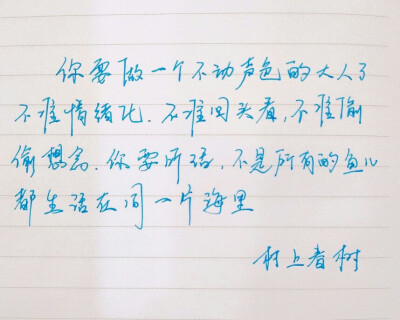 你要做一个不动声色的大人了
不准情绪化.不准回头看,不准偷
偷想念.你要听话,不是所有的鱼儿
都生活在同一片海里
村上春树